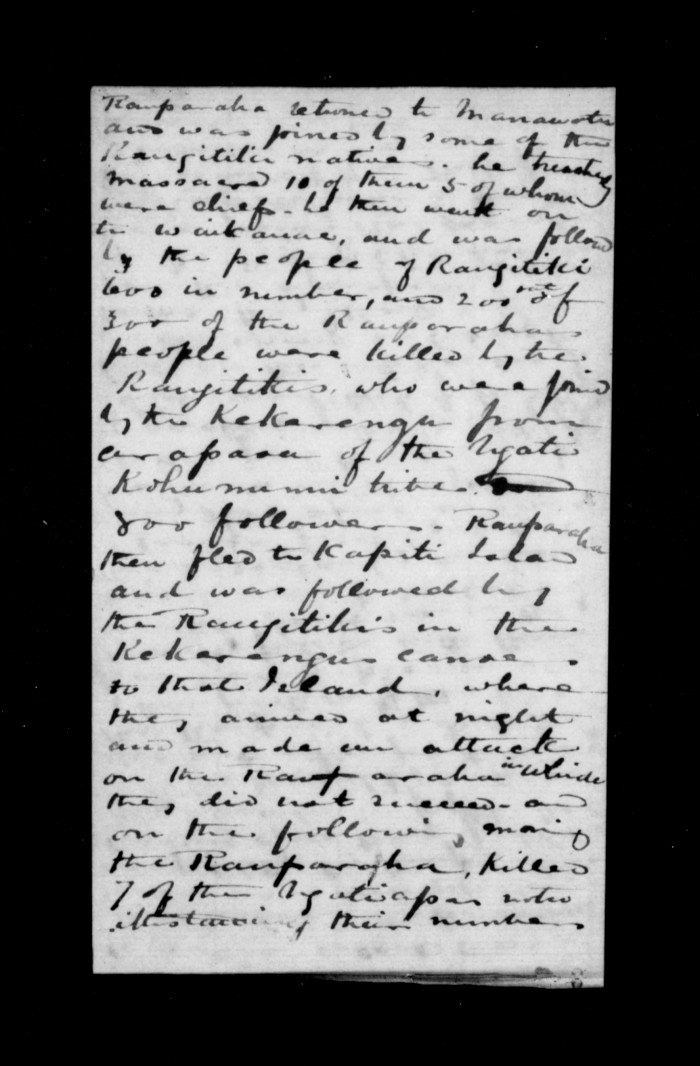 Rauparaha returned to Manawatu
and was joined by some of the
Rangitiki natives. he treachly
massacred 10 of them 5 of whom
were chiefs - he then went on
to Waikanae, and was followed
by the people of Rangitiki
600 in number, and 200 out of
300 of the Rauparahas
people were killed by the
Rangitikis, who were joined
by the Kekerengu from
arapaoa of the Ngati
Kohumumu tribe.
800 followers. Rauparaha
then fled to Kapiti Island
and was followed by
the Rangitikis in the
Kekerengus canoes
to that Island, where
they arrived at night
and made an attack
on the Rauparaha in which
they did not succeed - and
on the following morning
the Rauparaha, killed
7 of the Ngatiapas notw
ithstanding their numbers